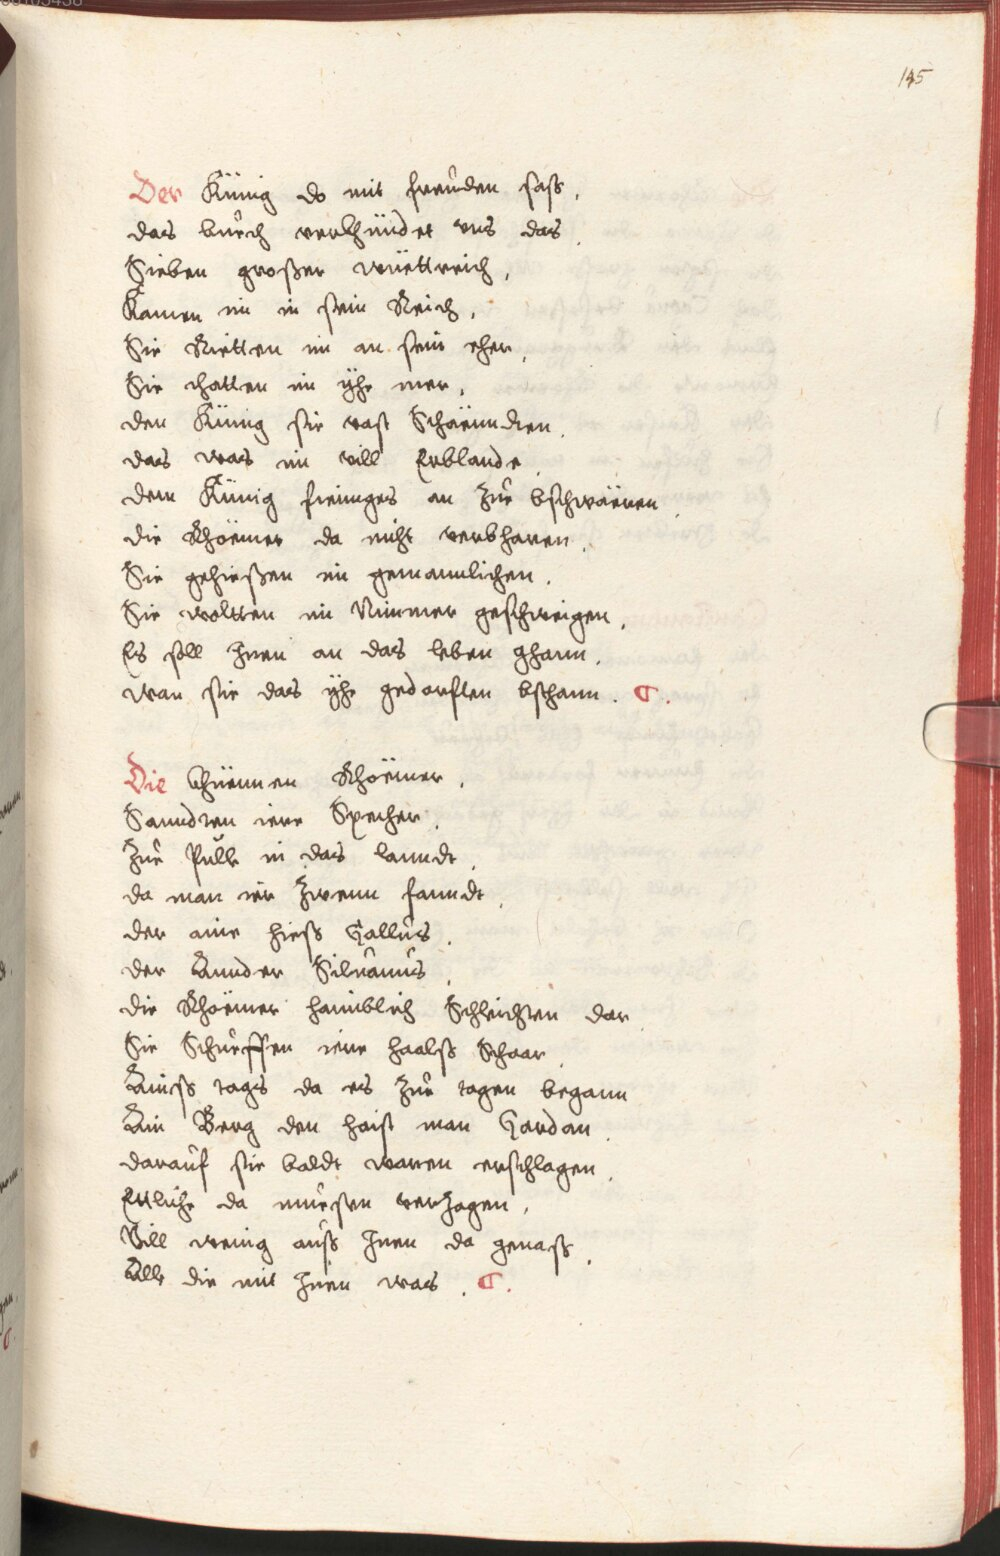 145
Der Künig do mit freuden sass,
das buch verkhündet vns das.
Sieben grosser wüettreich,
Kamen im in sein Reich,
Sie Rietten im an sein eher,
Sie thatten im yhe mer,
den Künig sie vast Schaenndten.
das was im vill Erblande.
dem Künig fieunges an zue bschwären.
die Rhömer da nicht verbharen.
Sie gehiessen im gemannlichen.
Sie woltten im Nimmer geschweigen,
Es soll Inen an das leben ghann.
wan sie das yhe gedorften bschann.
Die Chüennen Rhömer,
Sanndten iere Specher.
Zue Pulle in das lanndt.
da man ier zwenn fanndt.
der aine hiess Gallus.
der Annder Siluanus.
die Rhömer haimblich Schleichten dar.
Sie Schueffen iere haalss Schaar.
Ainss tags da es zue tagen begann
Ain Berg den haist man Gardan.
darauf sie baldt waren erschlagen.
Ettliche da muessen verzagen,
Vill wenig auss Inen da genass.
Alle die mit Inen was.